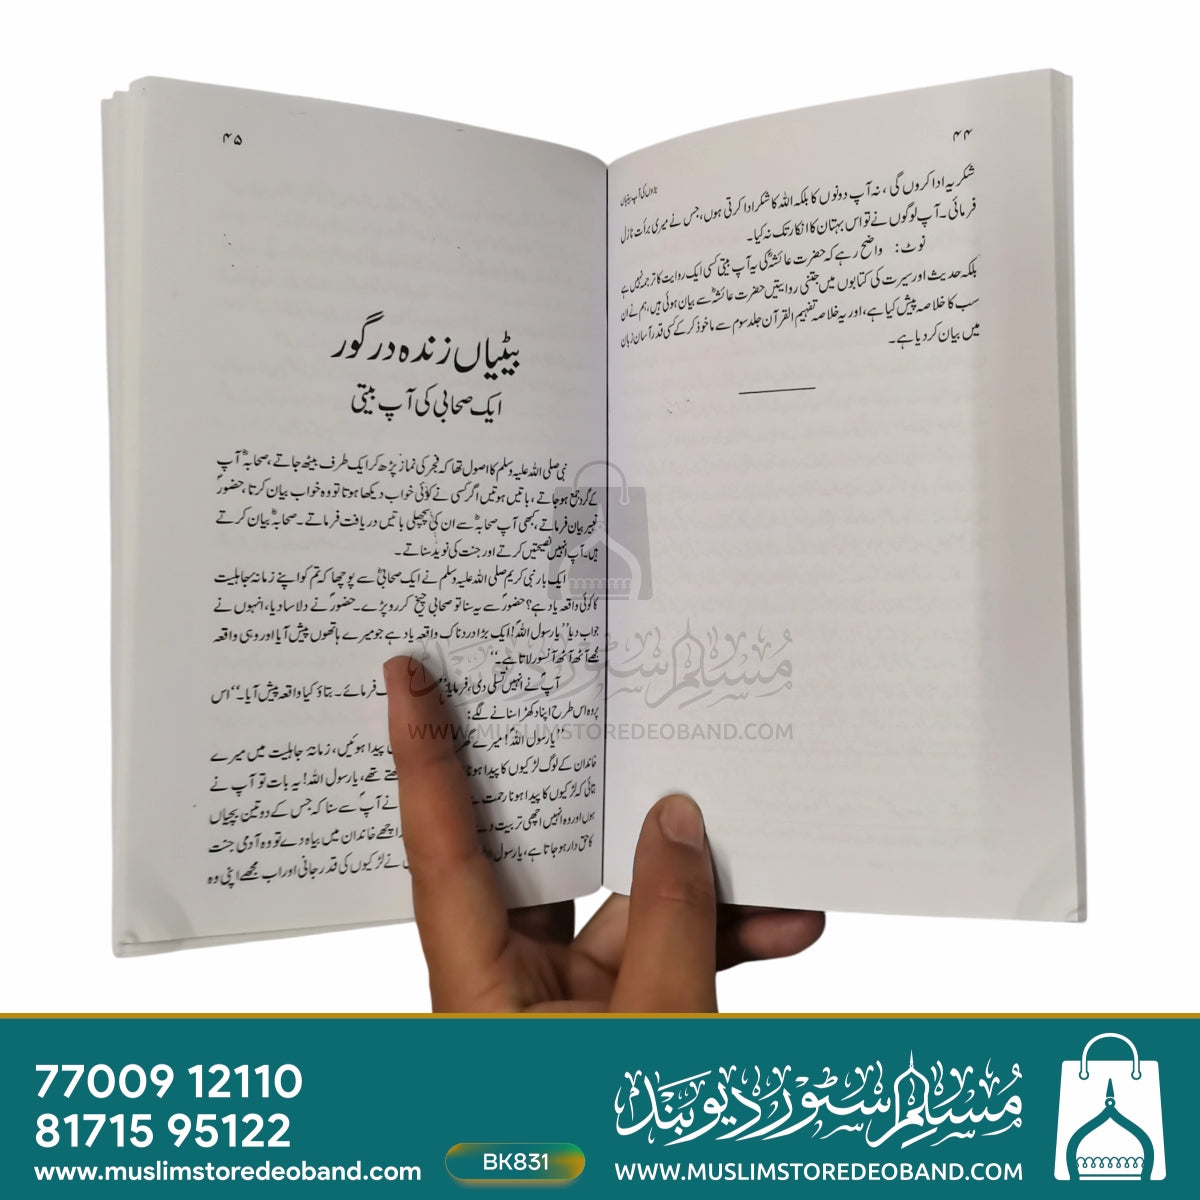 ۴۴
بڑوں کی آپ بیتیاں
شکریہ ادا کروں گی، نہ آپ دونوں کا بلکہ اللہ کا شکر ادا کرتی ہوں، جس نے میری برأت نازل
فرمائی۔ آپ لوگوں نے تو اس بہتان کا انکار تک نہ کیا۔
نوٹ: واضح رہے کہ حضرت عائشہؓ کی یہ آپ بیتی کسی ایک روایت کا ترجمہ نہیں ہے
بلکہ حدیث اور سیرت کی کتابوں میں جتنی روایتیں حضرت عائشہؓ سے بیان ہوئی ہیں، ہم نے ان
سب کا خلاصہ پیش کیا ہے، اور یہ خلاصہ تفہیم القرآن جلد سوم سے ماخوذ کر کے کسی قدر آسان زبان
میں بیان کر دیا ہے۔
۴۵
بیٹیاں زندہ درگور
ایک صحابی کی آپ بیتی
نبی صلی اللہ علیہ وسلم کا اصول تھا کہ فجر کی نماز پڑھ کر ایک طرف بیٹھ جاتے، صحابہؓ آپ
کے گرد جمع ہو جاتے، باتیں ہوتیں اگر کسی نے کوئی خواب دیکھا ہوتا تو وہ خواب بیان کرتا، حضورؐ
تعبیر بیان فرماتے، کبھی آپ صحابہؓ سے ان کی پچھلی باتیں دریافت فرماتے۔ صحابہؓ بیان کرتے
ہیں۔ آپ انہیں نصیحتیں کرتے اور جنت کی نوید سناتے۔
ایک بار نبی کریم صلی اللہ علیہ وسلم نے ایک صحابیؓ سے پوچھا کہ تم کو اپنے زمانہ جاہلیت
کا کوئی واقعہ یاد ہے؟ حضورؐ سے یہ سنا تو صحابی چیخ کر رو پڑے۔ حضورؐ نے دلاسا دیا، انہوں نے
جواب دیا "یا رسول اللہؐ! ایک بڑا دردناک واقعہ یاد ہے جو میرے ہاتھوں پیش آیا اور وہی واقعہ
مجھے آٹھ آٹھ آنسو رلاتا ہے۔"
آپؐ نے انہیں تسلی دی، فرمایا "فرمائے۔ بتاؤ کیا واقعہ پیش آیا۔" اس
پر وہ اس طرح اپنا دکھڑا سنانے لگے:
"یا رسول اللہؐ! میرے گھر پیدا ہوئیں، زمانہ جاہلیت میں میرے
خاندان کے لوگ لڑکیوں کا پیدا ہونا تھے، یا رسول اللہؐ! یہ بات تو آپ نے
بتائی کہ لڑکیوں کا پیدا ہونا رحمت نے آپؐ سے سنا کہ جس کے دو تین بچیاں
ہوں اور وہ انہیں اچھی تربیت دے اچھے خاندان میں بیاہ دے تو وہ آدمی جنت
کا حق دار ہو جاتا ہے، یا رسول نے لڑکیوں کی قدر جانی اور اب مجھے اپنی وہ
مسلم سٹور دیوبند
WWW.MUSLIMSTOREDEOBAND.COM
77009 12110
81715 95122
www.muslimstoredeoband.com
BK831
مسلم سٹور دیوبند
WWW.MUSLIMSTOREDEOBAND.COM